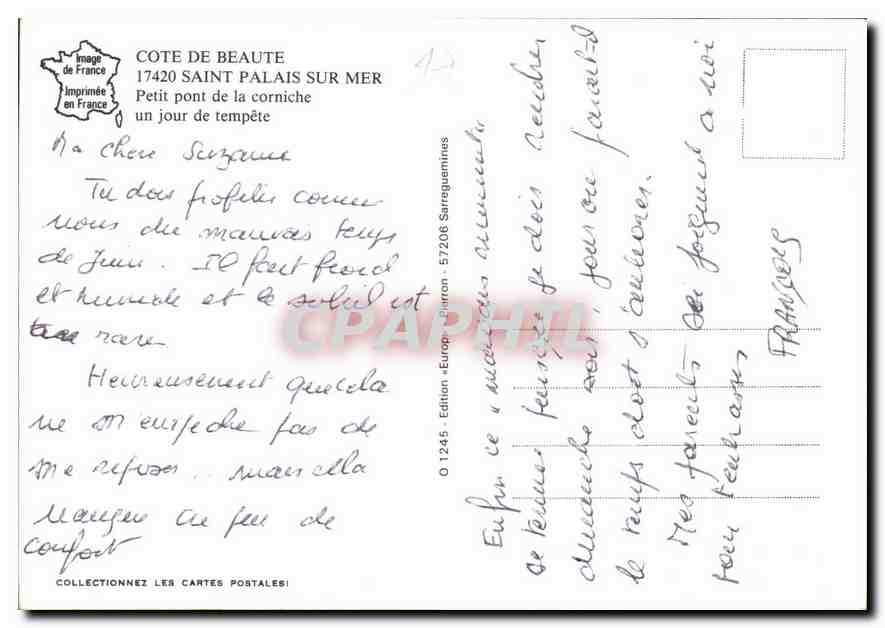 Image
de France
Imprimée
en France
COTE DE BEAUTE
17420 SAINT PALAIS SUR MER
Petit pont de la corniche
un jour de tempête
Ma chere Suzanne
Tu dois profiter comme
nous du mauvais temps
de Juin. Il fait froid
et humide et le soleil est
rare
Heureusement que cela
ne m'empeche pas de
me reposer.. mais cela
manque un peu de
confort
COLLECTIONNEZ LES CARTES POSTALES!
O 1245 - Edition «Europ» Pierron - 57206 Sarreguemines
CPAPHIL
Enfin ce « mauvais moment »
se termine puisque je dois rendre
dimanche soir, jour où parait-il
le temps doit s'améliorer.
Mes parents se joignent a moi
pour t'embrasser
FRANÇOIS